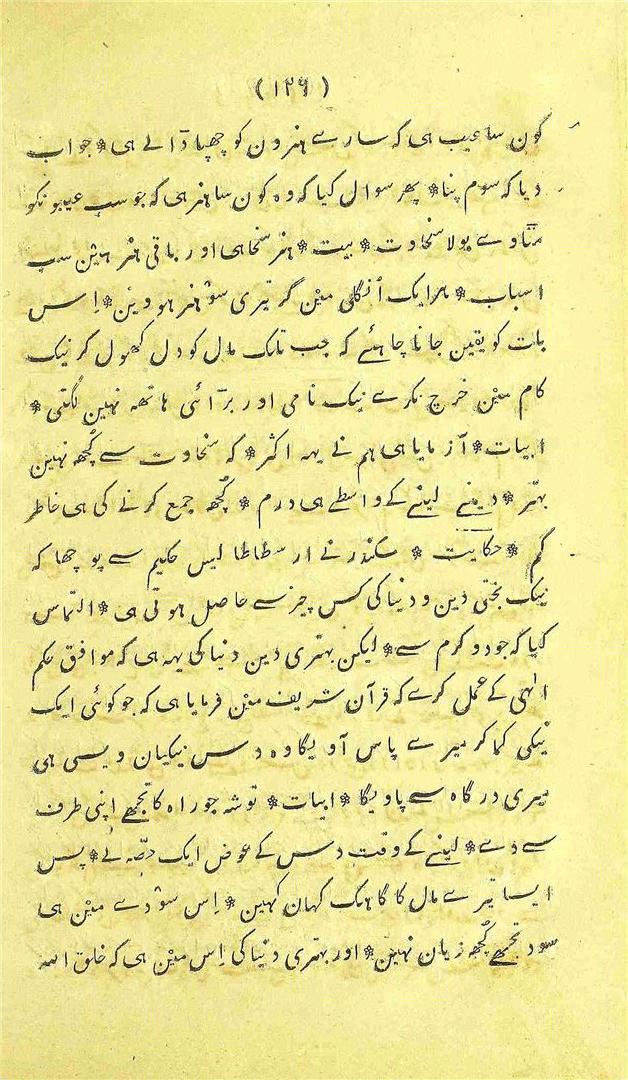 (۱۲۶)
کون سا عیب ہی کہ سارے ہنرون کو چھپا ڈالے ہی * جواب
دیا کہ سوم پنا * پھر سوال کیا کہ وہ کون سا ہنر ہی کہ جو سب عیبونکو
مٹاوے بولا سخاوت * بیت * ہنر سخا ہی اور باقی ہنر ہین سب
اسباب * ہر ایک اُنگلی مین گر تیری سوْ ہنر ہووین * اِس
بات کو یقین جانا چاہئے کہ جب تلک مال کو دل کھول کر نیک
کام مین خرچ نکرے نیک نامی اور بڑائی ہاتھہ نہین لگتی *
ابیات * آزمایا ہی ہم نے یہہ اکثر * کہ سخاوت سے کُچھ نہین
بہتر * دینے لینے کے واسطے ہی درم * کُچھ جمع کرنے کی ہی خاطر
کم * حکایت * سکندر نے ارسطاطالیس حکیم سے پوچھا کہ
نیک بختی دین و دنیا کی کس چیز سے حاصل ہوتی ہی * التماس
کیا کہ جود و کرم سے * لیکن بہتری دین دنیا کی یہہ ہی کہ موافق حکم
الٰہی کے عمل کرے کہ قرآن شریف مین فرمایا ہی کہ جو کوئی ایک
نیکی کما کر میرے پاس آویگا وہ دس نیکیان ویسی ہی
میری درگاہ سے پاویگا * ابیات * توشہ جو راہ کا تجھے اپنی طرف
سے دے * لینے کے وقت دس کے عوض ایک حصّہ لے * پس
ایسا تیرے مال کا گاہک کہان کہین * اِس سوْدے مین ہی
سود تجھے کُچھ زیان نہین * اور بہتری دنیا کی اِس مین ہی کہ خلق اللہ